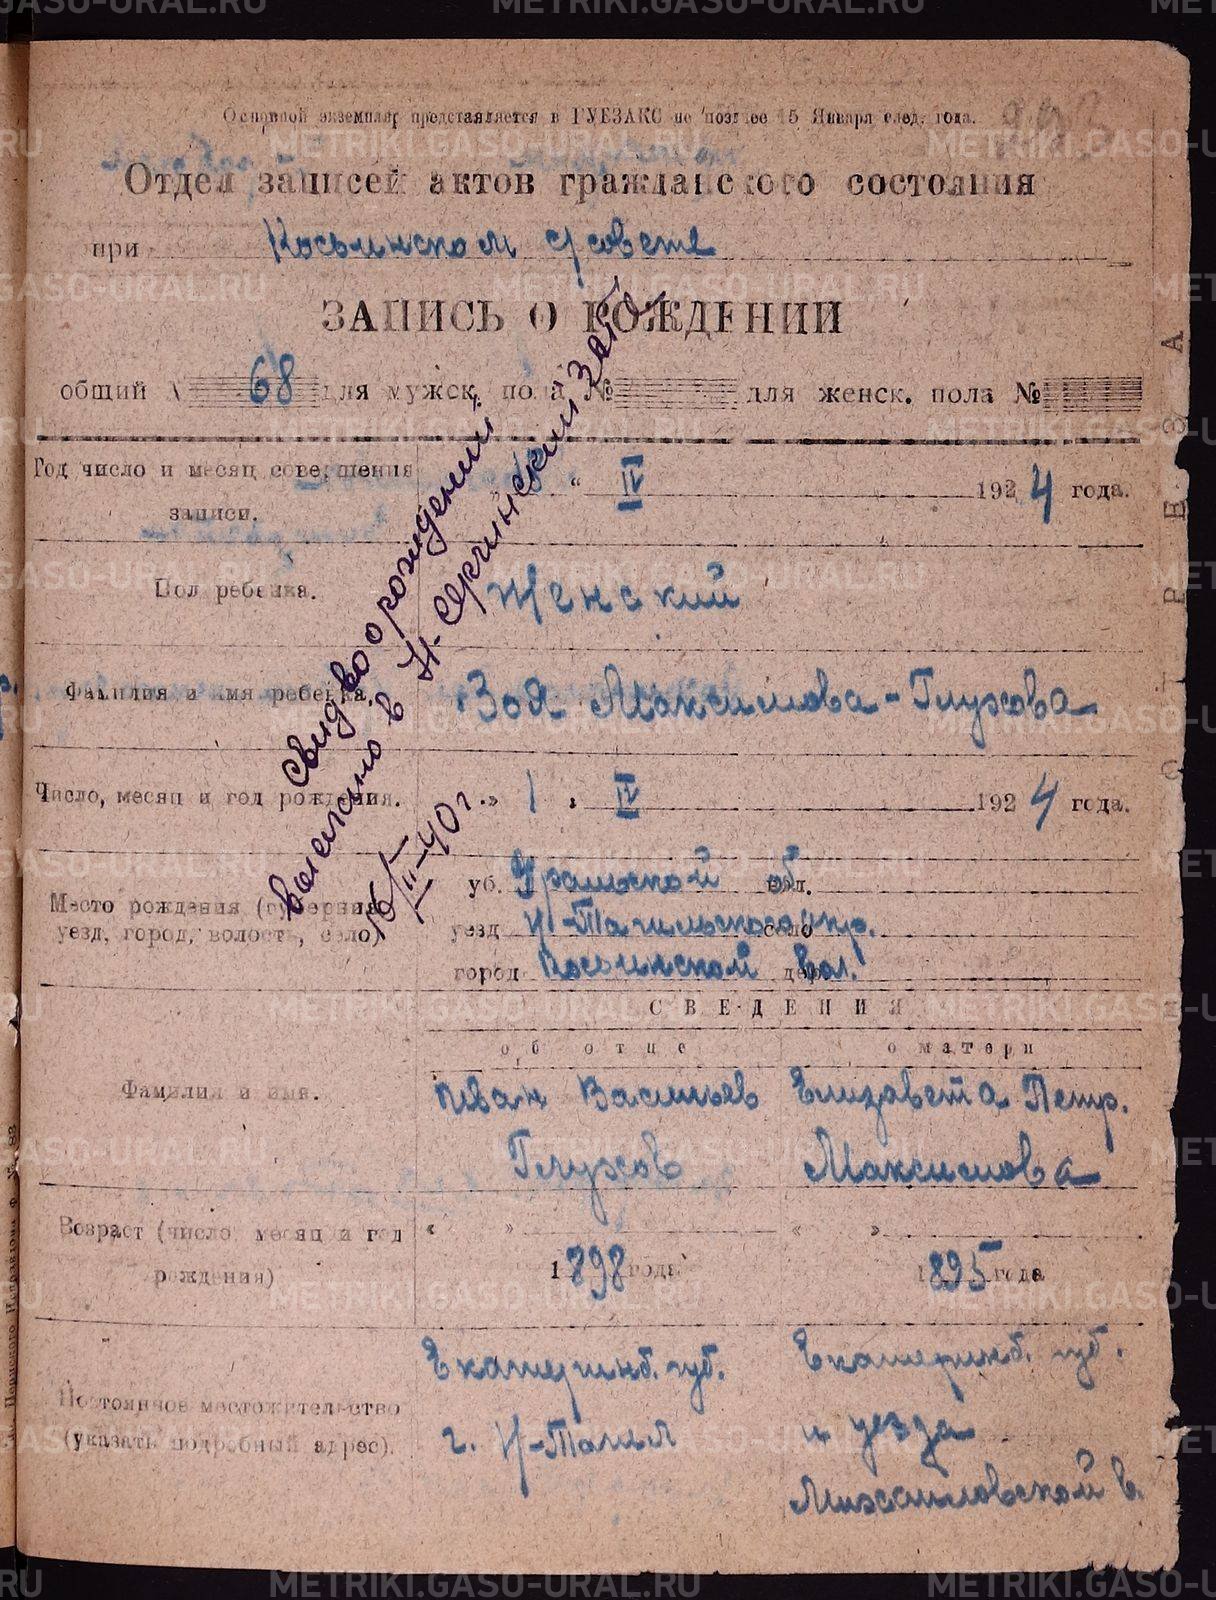 Основной экземпляр представляется в ГУБЗАКС не позднее 15 Января след. года.
Отдел записей актов гражданского состояния
при Косьинском с/совете
ЗАПИСЬ О РОЖДЕНИИ
общий № 68 для мужск. пола № для женск. пола №
Год число и месяц совершения записи. " IV 1924 года.
Пол ребенка. Женский
Фамилия и имя ребенка. Зоя Максимова-Глухова
Число, месяц и год рождения. " 1 " IV 1924 года.
Место рождения (губерния, уезд, город, волость, село)
уб. Уральской об вол.
уезд Н-Тагильского окр. село
город Косьинской вол. дер.
СВЕДЕНИЯ
об отце о матери
Фамилия и имя. Иван Васильев Елизавета Петр.
Глухов Максимова
Возраст (число месяц и год рождения) " " " "
1898 года 1895 года
Постоянное местожительство (указать подробный адрес).
Екатеринб. губ. Екатеринб. губ.
г. Н-Тагил и уезда
Михайловской в.
свид-во о рождении
выслано в Н-Сергинский Загс
16/III-40 г.
СТРЕБЗА
METRIKI.GASO-URAL.RU